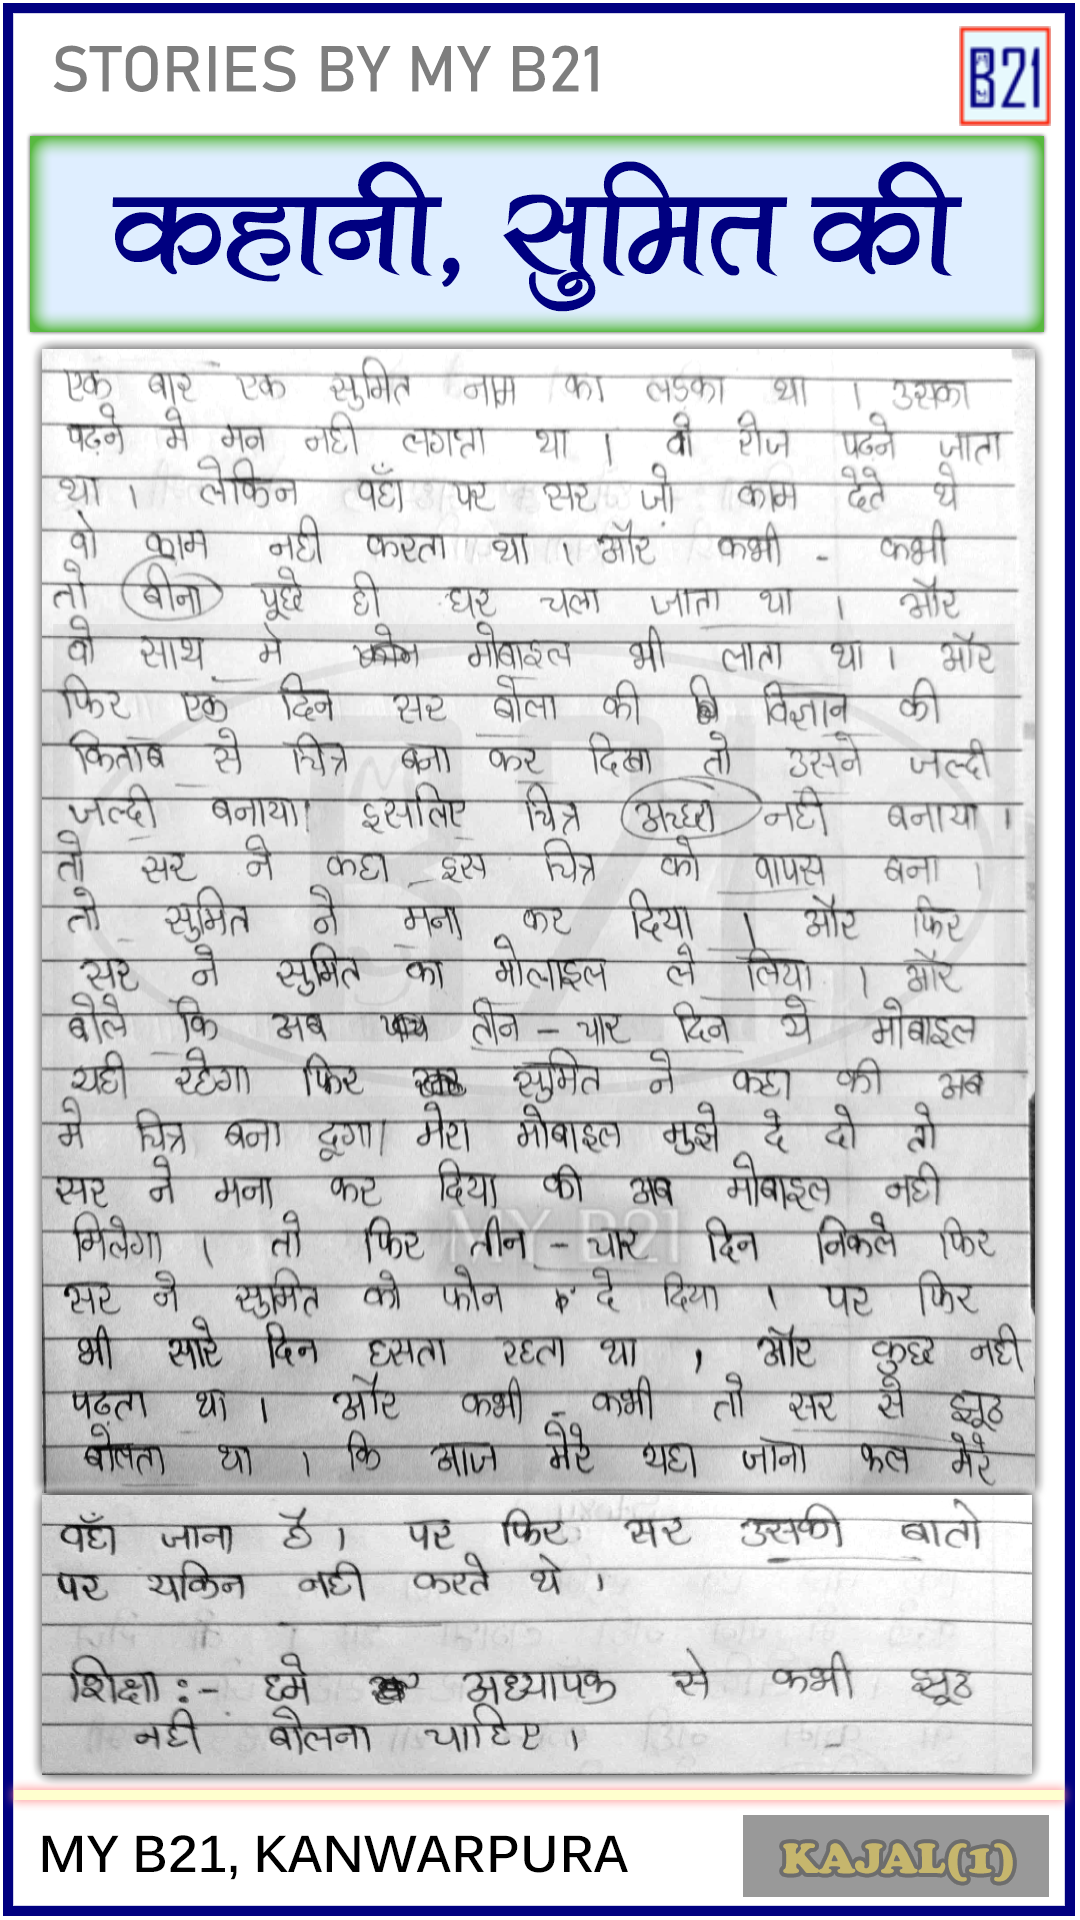 STORIES BY MY B21
B21
कहानी, सुमित की
एक बार एक सुमित नाम का लडका था । उसका
पढ़ने मे मन नही लगता था । वो रोज पढ़ने जाता
था । लेकिन वहाँ पर सर जो काम देते थे
वो काम नही करता था । और कभी - कभी
तो बीना पूछे ही घर चला जाता था । और
वो साथ मे मोबाइल भी लाता था । और
फिर एक दिन सर बोला की विज्ञान की
किताब से चित्र बना कर दिखा तो उसने जल्दी
जल्दी बनाया। इसलिए चित्र अच्छा नही बनाया ।
तो सर ने कहा इस चित्र को वापस बना ।
तो सुमित ने मना कर दिया । और फिर
सर ने सुमित का मोलाइल ले लिया । और
बोले कि अब तीन - चार दिन ये मोबाइल
यही रहेगा फिर सुमित ने कहा की अब
मे चित्र बना दूगा। मेरा मोबाइल मुझे दे दो तो
सर ने मना कर दिया की अब मोबाइल नही
मिलेगा । तो फिर तीन - चार दिन निकले फिर
सर ने सुमित को फोन दे दिया । पर फिर
भी सारे दिन हसता रहता था , और कुछ नही
पढ़ता था । और कभी - कभी तो सर से झूठ
बोलता था । कि आज मेरे यहा जाना कल मेरे
वहाँ जाना है । पर फिर सर उसकी बातो
पर यकिन नही करते थे ।
शिक्षा :- हमे अध्यापक से कभी झूठ
नही बोलना चाहिए ।
MY B21
MY B21, KANWARPURA
KAJAL(1)